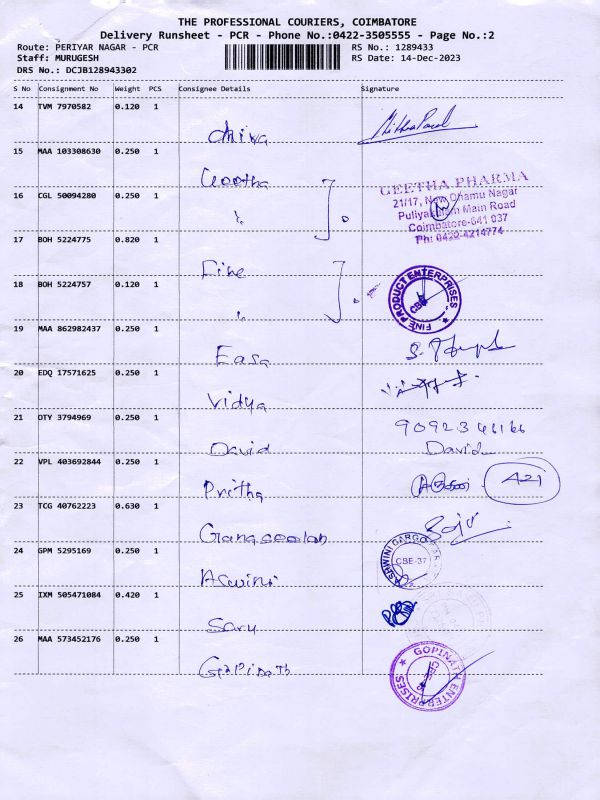 THE PROFESSIONAL COURIERS, COIMBATORE
Delivery Runsheet - PCR - Phone No.:0422-3505555 - Page No.:2
Route: PERIYAR NAGAR - PCR RS No.: 1289433
Staff: MURUGESH RS Date: 14-Dec-2023
DRS No.: DCJB128943302
S No Consignment No Weight PCS Consignee Details Signature
14 TVM 7970582 0.120 1
15 MAA 103308630 0.250 1
Geetha
16 CGL 50094280 0.250 1
GEETHA PHARMA
21/17, New Dhamu Nagar
Puliyakulam Main Road
Coimbatore-641 037
Ph: 0422-4214774
17 BOH 5224775 0.820 1
Fine
FINE PRODUCT ENTERPRISES
CBE
18 BOH 5224757 0.120 1
19 MAA 862982437 0.250 1
Easa
20 EDQ 17571625 0.250 1
Vidya
21 OTY 3794969 0.250 1
David 9092346166
David
22 VPL 403692844 0.250 1
Pritha A21
23 TCG 40762223 0.630 1
24 GPM 5295169 0.250 1
Aswini ASHWINI CARGO
CBE-37
25 IXM 505471084 0.420 1
Saru
26 MAA 573452176 0.250 1
Gopinath GOPINATH ENTERPRISES
CBE